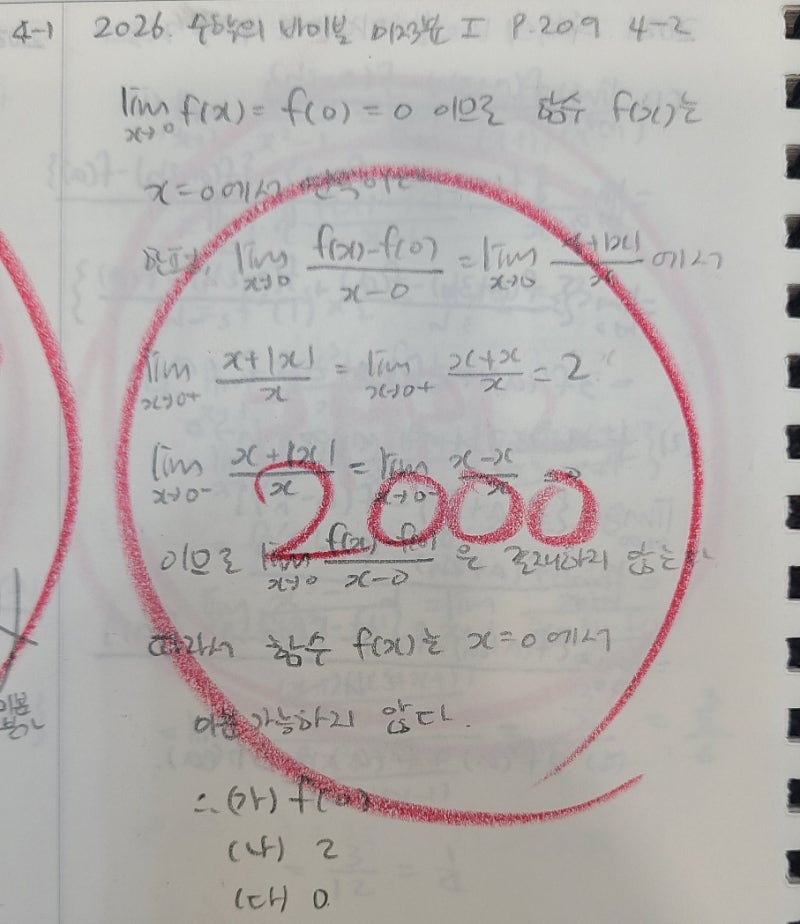 4-1 2026. 수학의 바이블 미적분 I P.209 4-2
lim x→0 f(x) = f(0) = 0 이므로 함수 f(x)는
x=0에서
한편, lim x→0 f(x)-f(0)/x-0 = lim x→0 x+|x|/x 에서
lim x→0+ x+|x|/x = lim x→0+ x+x/x = 2
lim x→0- x+|x|/x = lim x→0- x-x/x = 0
2000
이므로 lim x→0 f(x)-f(0)/x-0 은 존재하지 않는다
따라서 함수 f(x)는 x=0에서
미분가능하지 않다.
∴ (가) f(0)
(나) 2
(다) 0